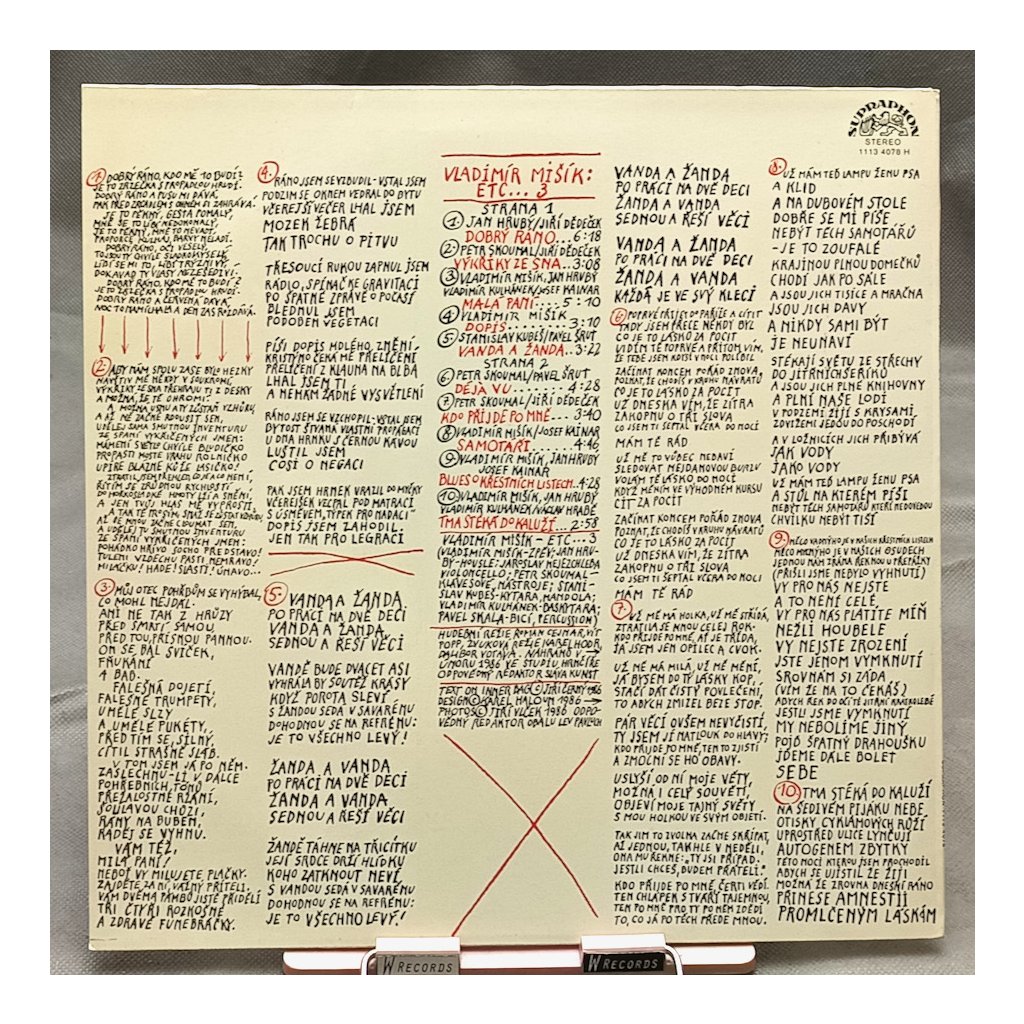 SUPRAPHON
STEREO
1113 4078 H
1. DOBRÝ RÁNO, KDO MĚ TO BUDÍ?
JE TO ZRZEČKA S PROPADLOU HRUDÍ.
DOBRÝ RÁNO A PUSU MI DÁVÁ,
PAK PŘED ZRCADLEM S OHNĚM SI ZAHRÁVÁ.
JE TO PĚKNÝ, GESTA POMALÝ,
MNĚ SE TO LÍBÍ NEDOKONALÝ,
JE TO PĚKNÝ, MNĚ TO NEVADÍ,
DOBRÝ RÁNO, OČI VESELÝ,
LÍBÍ SE MI TO, LIBĚ TRÝZNIVÝ
DOKAVAD TY VLASY NEZEŠEDIVÍ.
DOBRÝ RÁNO, KDO MĚ TO BUDÍ?
JE TO ZRZEČKA S PROPADLOU HRUDÍ.
DOBRÝ RÁNO A ČERVENÁ DÁVÁ,
NOC TO NAMÍCHALA A DEN ZAS ROZDÁVÁ.
2. ABY NÁM SPOLU ZASE BYLO HEZKY
NAVŠTIV MĚ NĚKDY V SOUKROMÍ,
VÝKŘIKY ZE SNA PŘEHRAJU TI Z DESKY
A MOŽNÁ, ŽE TĚ OHROMÍ.
A MOŽNÁ USNU A TY ZŮSTAŇ VZHŮRU,
A AŽ MĚ ZAČNE RDOUSIT SEN,
UDĚLEJ SAMA SMUTNOU INVENTURU
ZE SPANÍ VYKŘIČENÝCH JMEN:
MÁMENÍ SVĚTLO CHVÍLE BLUDIČKO
PROPASTI MOSTE IRAHU ROLNIČKO
UPÍŘE BLÁZNE KŮŽE LASIČKO!
ŘÍTÍM SE ZRŮDNOU RYCHLOSTÍ
DO MOKROSLADKÉ HMOTY LŽÍ A SNĚNÍ,
A JEN TVŮJ HLAS MĚ VYPROSTÍ.
A TAK TĚ PROSÍM, KDYŽ SE ZŮSTAT VZHŮRU,
AŽ MĚ NOC ZAČNE CLOUMAT SEM,
A UDĚLEJ TU SMUTNOU INVENTURU
ZE SPANÍ VYKŘIČENÝCH JMEN:
POHÁDKO HŘÍVO SOCHO PŘEDSTAVO!
TULENI VZDECHU PASTI NEMRAVO!
MILÁČKU! HADE! SLASTI! ÚNAVO...
3. MŮJ OTEC POHŘBŮM SE VYHÝBAL,
CO MOHL NEJDÁL.
ANI NE TAK Z HRŮZY
PŘED SMRTÍ SAMOU,
PŘED TOU PŘÍSNOU PANNOU.
ON SE BÁL SVÍČEK,
FŇUKÁNÍ
A BAB.
FALEŠNÁ DOJETÍ,
FALEŠNÉ TRUMPETY,
UMĚLÉ SLZY
A UMĚLÉ PUKÉTY,
PŘED TÍM SE, SILNÝ,
CÍTIL STRAŠNĚ SLÁB.
V TOM JSEM JÁ PO NĚM.
ZASLECHNU-LI V DÁLCE
POHŘEBNÍCH TÓNŮ
PŘEŽALOSTNÉ RŽÁNÍ,
ŠOULAVOU CHŮZI,
RÁNY NA BUBEN,
RADĚJ SE VYHNU.
VÁM TÉŽ,
MILÁ PANÍ!
NEBOŤ VY MILUJETE PLAČKY.
ZAJDĚTE, ZA NÍ, VÁŽNÝ PŘÍTELI.
VÁM DVĚMA TAMBOŽ JISTĚ PŘIDĚLÍ
TŘI ČTYŘI ROZKOŠNÉ
A ZDRAVÉ FUNEBRAČKY.
4. RÁNO JSEM SE VZBUDIL - VSTAL JSEM
PODZIM SE OKNEM VEDRAL DO BYTU
VČEREJŠÍ VEČER LHAL JSEM
MOZEK ŽEBRÁ
TAK TROCHU O PITVU
TŘESOUCÍ RUKOU ZAPNUL JSEM
RÁDIO, SPÍNAČKE GRAVITACÍ
PO ŠPATNÉ ZPRÁVĚ O POČASÍ
BLEDNUL JSEM
PODOBEN VEGETACI
PÍŠI DOPIS MDLÉHO ZNĚNÍ
KRISTÝNO ČEKÁ MĚ PŘELÍČENÍ
PŘELÍČENÍ Z KLAUNA NA BLBA
LHAL JSEM TI
A NEMÁM ŽÁDNÉ VYSVĚTLENÍ
RÁNO JSEM SE VZCHOPIL - VSTAL JSEM
BYTOST ŠTVANÁ VLASTNÍ PROPAGACÍ
U DNA HRNKU S ČERNOU KÁVOU
LUŠTIL JSEM
COSI O NEGACI
PAK JSEM HRNEK VRAZIL DO MYČKY
VČEREJŠEK VECPAL POD MATRACI
S ÚSMĚVEM „TÝPEK PRO NADACI“
DOPIS JSEM ZAHODIL.
JEN TAK PRO LEGRACI
5. VANDA A ŽANDA
PO PRÁCI NA DVĚ DECI
VANDA A ŽANDA
SEDNOU A ŘEŠÍ VĚCI
VANDĚ BUDE DVACET ASI
VYHRÁLA BY SOUTĚŽ KRÁSY
KDYŽ POROTA SLEVÍ
S ŽANDOU SEDÁ V SAVARENU
DOHODNOU SE NA REFRÉNU:
JE TO VŠECHNO LEVÝ!
ŽANDA A VANDA
PO PRÁCI NA DVĚ DECI
ŽANDA A VANDA
SEDNOU A ŘEŠÍ VĚCI
ŽANDĚ TÁHNE NA TŘICÍTKU
JEJÍ SRDCE DRŽÍ HLÍDKU
KOHO ZATKNOUT NEVÍ
S VANDOU SEDÁ V SAVARENU
DOHODNOU SE NA REFRÉNU:
JE TO VŠECHNO LEVÝ!
VLADIMÍR MIŠÍK:
ETC... 3
STRANA 1
1 JAN HRUBÝ/JIŘÍ DĚDEČEK
DOBRÝ RÁNO...6:18
2 PETR SKOUMAL/JIŘÍ DĚDEČEK
VÝKŘIKY ZE SNA...3:08
3 VLADIMÍR MIŠÍK, JAN HRUBÝ
VLADIMÍR KULHÁNEK/JOSEF KAINAR
MALÁ PANÍ....5:10
4 VLADIMÍR MIŠÍK
DOPIS.........3:10
5 STANISLAV KUBEŠ/PAVEL ŠRUT
VANDA A ŽANDA..3:22
STRANA 2
6 PETR SKOUMAL/PAVEL ŠRUT
DÉJÀ VU........4:28
7 PETR SKOUMAL/JIŘÍ DĚDEČEK
KDO PŘIJDE PO MNĚ...3:40
8 VLADIMÍR MIŠÍK/JOSEF KAINAR
SAMOTÁŘI.......4:46
9 VLADIMÍR MIŠÍK, JAN HRUBÝ
JOSEF KAINAR
BLUES O KŘESTNÍCH LISTECH..4:28
10 VLADIMÍR MIŠÍK, JAN HRUBÝ
VLADIMÍR KULHÁNEK/VÁCLAV HRABĚ
TMA STÉKÁ DO KALUŽÍ...2:58
VLADIMÍR MIŠÍK - ETC... 3
(VLADIMÍR MIŠÍK-ZPĚV; JAN HRU-
BÝ-HOUSLE; JAROSLAV NEJEZCHLEBA
VIOLONCELLO; PETR SKOUMAL-
KLÁVESOVÉ NÁSTROJE; STANI-
SLAV KUBEŠ-KYTARA, MANDOLA;
VLADIMÍR KULHÁNEK-BASKYTARA;
PAVEL SKALA-BICÍ, PERCUSSION)
HUDEBNÍ REŽIE ROMAN CEJNAR, VÍT
POPP, ZVUKOVÁ REŽIE KAREL HODR,
DALIBOR VOTAVA. NAHRÁNO V
ÚNORU 1986 VE STUDIU HRNČÍŘE
ODPOVĚDNÝ REDAKTOR SLÁVA KUNST
TEXT ON INNER BAG © JIŘÍ ČERNÝ 1986
DESIGN © KAREL HALOUN 1986
PHOTOS © JIŘÍ VLČEK 1986 ODPO-
VĚDNÝ REDAKTOR OBALU LEV PAVLUCH
VANDA A ŽANDA
PO PRÁCI NA DVĚ DECI
ŽANDA A VANDA
SEDNOU A ŘEŠÍ VĚCI
VANDA A ŽANDA
PO PRÁCI NA DVĚ DECI
ŽANDA A VANDA
KAŽDÁ JE VE SVÝ KLECI
6. POPRVÉ PŘIJET DO PAŘÍŽE A CÍTIT
TADY JSEM PŘECE NĚKDY BYL
CO JE TO LÁSKO ZA POCIT
VIDÍM TĚ POPRVÉ A PŘITOM VÍM,
ŽE TEBE JSEM KDYSI V NOCI POLÍBIL
ZAČÍNAT KONCEM POŘÁD ZNOVA,
POZNAT, ŽE CHODÍŠ V KRUHU NÁVRATŮ
CO JE TO LÁSKO ZA POCIT
UŽ DNESKA VÍM, ŽE ZÍTRA
ZAKOPNU O TŘI SLOVA
CO JSEM TI ŠEPTAL VČERA DO NOCI
MÁM TĚ RÁD
UŽ MĚ TO VŮBEC NEBAVÍ
SLEDOVAT NEJDÁNOVOU BURZU
VOLÁM TĚ LÁSKO, DO NOCI
KDYŽ MĚNÍM VE VÝHODNÉM KURSU
CIT ZA POCIT
ZAČÍNAT KONCEM POŘÁD ZNOVA
POZNAT, ŽE CHODÍŠ V KRUHU NÁVRATŮ
CO JE TO LÁSKO ZA POCIT
UŽ DNESKA VÍM, ŽE ZÍTRA
ZAKOPNU O TŘI SLOVA
CO JSEM TI ŠEPTAL VČERA DO NOCI
MÁM TĚ RÁD
7. UŽ MĚ MÁ HOLKA, UŽ MĚ STŘÍDÁ,
ZTRATILA SE KNOU CELEJ ROK.
KDO PŘIJDE PO MNĚ, AŤ JE TŘÍDA,
JÁ JSEM JEN OPILEC A CVOK.
UŽ MĚ MÁ MILÁ, UŽ MĚ MĚNÍ,
JÁ BYSEM DO TÝ LÁSKY KOP,
STAČÍ DÁT ČISTÝ POVLEČENÍ,
TO ABYCH ZMIZEL BEZE STOP.
PÁR VĚCÍ OVŠEM NEVYČISTÍ,
TY JSEM JÍ NATLOUK DO HLAVY;
KDO PŘIJDE PO MNĚ, TEN TO ZJISTÍ
A ZMOCNÍ SE HO OBAVY.
USLYŠÍ OD NÍ MOJE VĚTY,
MOŽNÁ I CELÝ SOUVĚTÍ,
OBJEVÍ MOJE TAJNÝ SVĚTY
S MOU HOLKOU VE SVÝM OBJETÍ.
TAK JIM TO ZVOLNA ZAČNE SKŘÍPAT,
AŽ JEDNOU, TAKHLE V NEDĚLI,
ONA MU ŘEKNE: „TY JSI PŘÍPAD.
JESTLI CHCEŠ, BUDEM PŘÁTELI.“
KDO PŘIJDE PO MNĚ, ČERTI VĚDÍ.
TEN CHLÁPEK S TVÁŘÍ TAJEMNOU,
TEN PO MNĚ PRO TY PO NĚM ZDĚDÍ
TO, CO JÁ PO TĚCH PŘEDE MNOU.
8. UŽ MÁM TEĎ LAMPU ŽENU PSA
A KLID
A NA DUBOVÉM STOLE
DOBŘE SE MI PÍŠE
NEBÝT TĚCH SAMOTÁŘŮ
- JE TO ZOUFALÉ
KRAJINOU PLNOU DOMEČKŮ
CHODÍ JAK PO SÁLE
A JSOU JICH TISÍCE A MRAČNA
JSOU JICH DAVY
A NIKDY SAMI BÝT
JE NEUNAVÍ
STÉKAJÍ SVĚTY ZE STŘECHY
DO JITŘNÍCH ŠERÍKŮ
A JSOU JICH PLNÉ KNIHOVNY
A PLNÍ NAŠE LODI
V PODZEMÍ ŽIJÍ S KRYSAMI,
ZDVIŽEMI JEDOU DO POSCHODÍ
A V LOŽNICÍCH JICH PŘIBÝVÁ
JAK VODY
JAKO VODY
UŽ MÁM TEĎ LAMPU ŽENU PSA
A STŮL NA KTERÉM PÍŠI
NEBÝT TĚCH SAMOTÁŘŮ KTEŘÍ NEDOVEDOU
CHVILKU NEBÝT TIŠÍ
9. NĚCO VADNÝHO JE V NAŠICH KŘESTNÍCH LISTECH
NĚCO MRZNÝHO JE V NAŠICH OSUDECH
JEDNOU NÁM ZRÁNA ŘEKNOU U PŘEPÁŽKY
(PŘIŠLI JSME NEBYLO VYHNUTÍ)
VY PRO NÁS NEJSTE
A TO NENÍ CELÉ,
VY PRO NÁS PLATÍTE MÍŇ
NEŽLI HOUBELE
VY NEJSTE ZROZENÍ
JSTE JENOM VYMKNUTÍ
SROVNÁM SI ZÁDA
(VÍM ŽE NA TO ČEKÁŠ)
ABYCH ŘEK DO OČÍ TÉ JITŘNÍ KARABOLEBĚ
JESTLI JSME VYMKNUTÍ
MY NEBOLÍME JINÝ
POJĎ ŠPATNÝ DRAHOUŠKU
JDEME DÁLE BOLET
SEBE
10. TMA STÉKÁ DO KALUŽÍ
NA ŠEDIVÉM PIJÁKU NEBE
OTISKY CYKLÁMOVÝCH RŮŽÍ
UPROSTŘED ULICE LYNČUJÍ
AUTOGENEM ZBYTKY
TÉTO NOCI KTEROU JSEM PROCHODIL
ABYCH SE UJISTIL ŽE ŽIJI
MOŽNÁ ŽE ZROVNA DNEŠNÍ RÁNO
PŘINESE AMNESTII
PROMLČENÝM LÁSKÁM
W RECORDS
W RECORDS